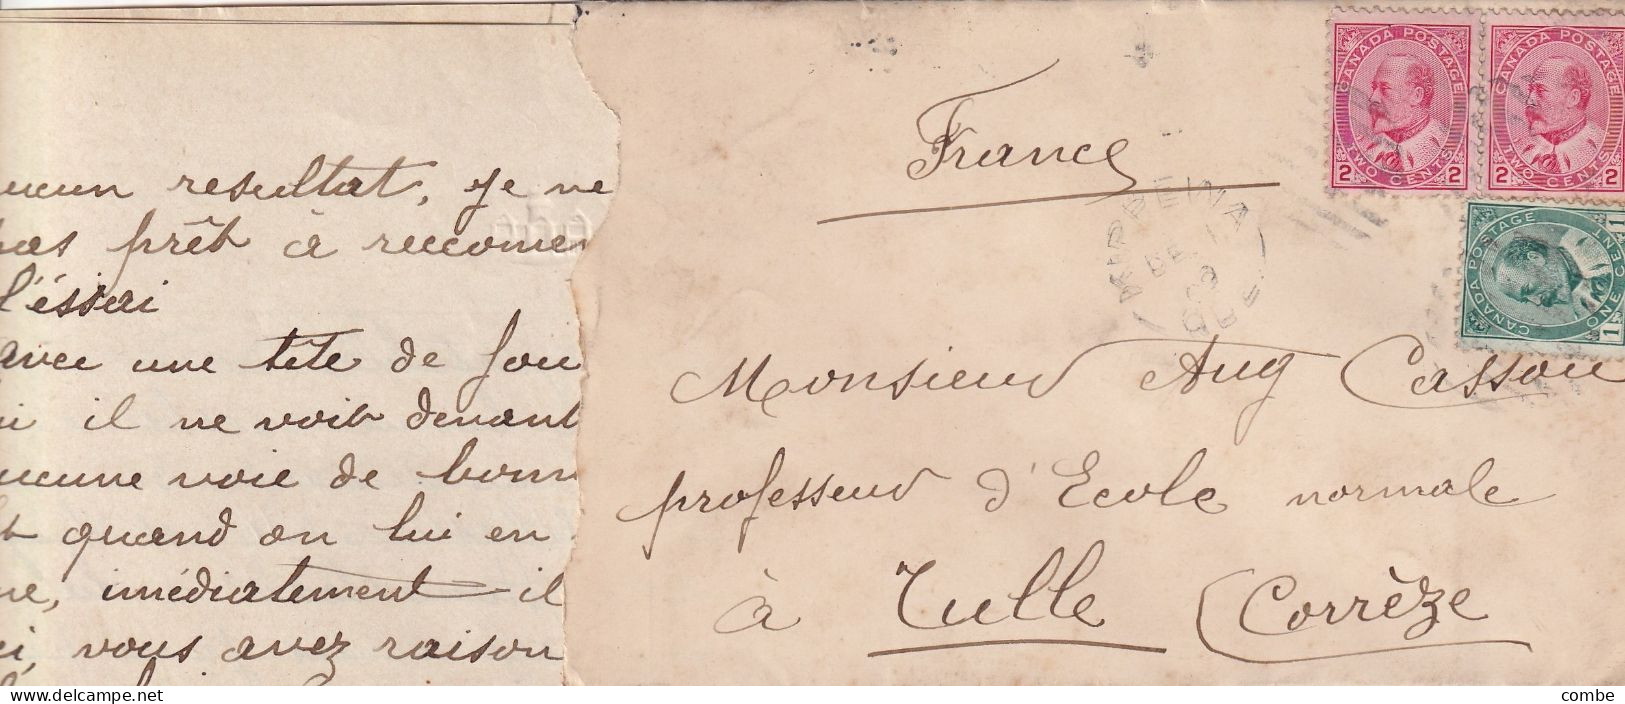 ucun resultat, je ne
pas prêt à reccomen
l'éssai
avec une tête de fou
i il ne voit devant
ucune voie de bonn
t quand on lui en
ne, imédiatement il
i, vous avez raison
France
CANADA POSTAGE
2 TWO CENTS 2
CANADA POSTAGE
2 TWO CENTS 2
CANADA POSTAGE
1 ONE CENT 1
DE 1
Monsieur Aug Cassou
professeur d'Ecole normale
à Tulle (Corrèze
Delcampe.net
combe